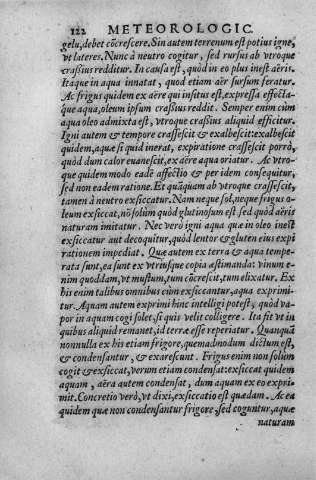 122 METEOROLOGIC.
gelu, debet cõcrescere. Sin autem terrenum est potius igne,
vt lateres. Nunc à neutro cogitur, sed rursus ab vtroque
crassius redditur. In causa est, quòd in eo plus inest aëris.
Itaque in aqua innatat, quod etiam aër sursum feratur.
Ac frigus quidem ex aëre qui insitus est, expressa effectá-
que aqua, oleum ipsum crassius reddit. Semper enim cùm
aqua oleo admixta est, vtroque crassius aliquid efficitur.
Igni autem & tempore crassescit & exalbescit: exalbescit
quidem, aquæ si quid inerat, expiratione crassescit porrò,
quòd dum calor euanescit, ex aëre aqua oriatur. Ac vtro-
que quidem modo eadẽ affectio & per idem consequitur,
sed non eadem ratione. Et quãquam ab vtroque crassescit,
tamen à neutro exsiccatur. Nam neque sol, neque frigus o-
leum exsiccat, nõ solùm quòd glutinosum est sed quòd aëris
naturam imitatur. Nec verò igni aqua quæ in oleo inest
exsiccatur aut decoquitur, quòd lentor & gluten eius expi
rationem impediat. Quæ autem ex terra & aqua tempe-
rata sunt, ea sunt ex vtriusque copia æstimanda: vinum e-
nim quoddam, vt mustum, tum cõcrescit, tum elixatur. Ex
his enim talibus omnibus cùm exsiccantur, aqua exprimi-
tur. Aquam autem exprimi hinc intelligi potest, quòd va-
por in aquam cogi solet, si quis velit colligere. Ita fit vt in
quibus aliquid remanet, id terræ esse reperiatur. Quanquã
nonnulla ex his etiam frigore, quemadmodum dictum est,
& condensantur, & exarescunt. Frigus enim non solùm
cogit & exsiccat, verum etiam condensat: exsiccat quidem
aquam, aëra autem condensat, dum aquam ex eo expri-
mit. Concretio verò, vt dixi, exsiccatio est quædam. Ac ea
quidem quæ non condensantur frigore, sed coguntur, aquæ
naturam